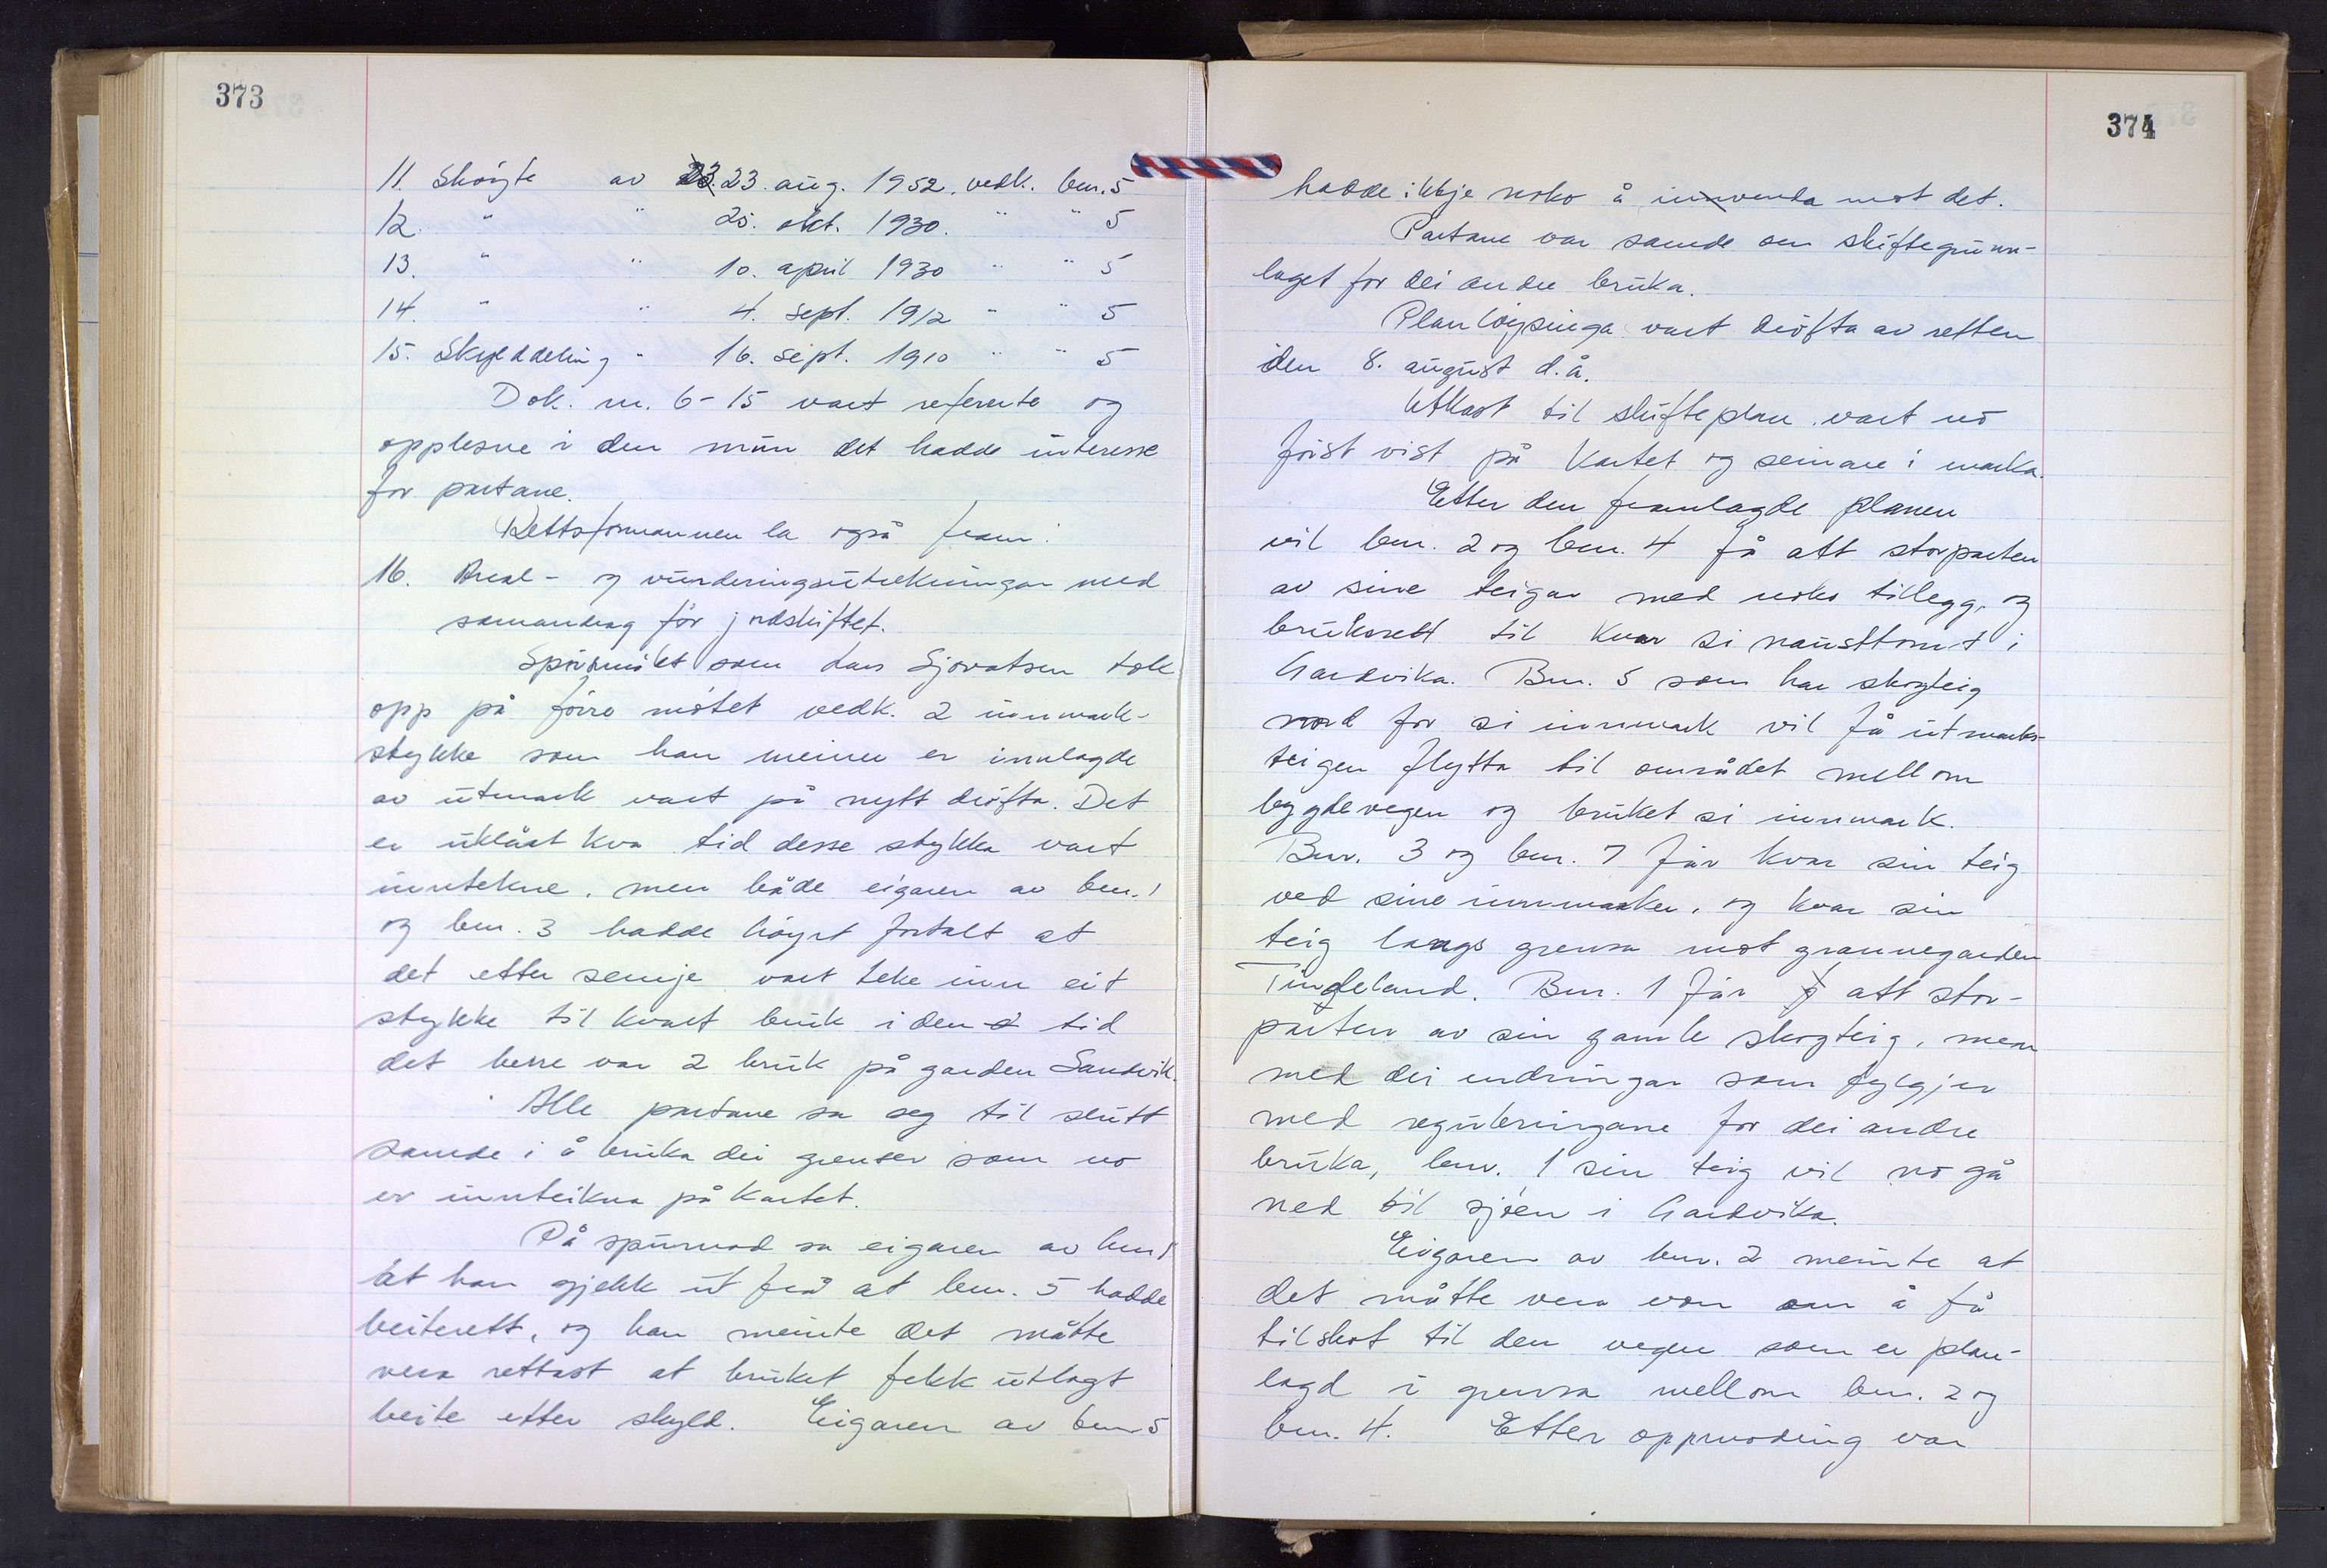 373
11. Skøyte av 23. 23. aug. 1952. vedk. bnr. 5
12. " " 25. okt. 1930. " " 5
13. " " 10. april 1930 " " 5
14. " " 4. sept. 1912 " " 5
15. Skylddeling " 16. sept. 1910 " " 5
Dok. nr. 6-15 vart refererte og
opplesne i den mun det hadde interesse
for partane.
Rettsformannen la også fram:
16. Areal- og vurderingsutrekningar med
samandrag før jordskiftet.
Spørsmålet som Lars Sjovatsen tok
opp på førre møtet vedk. 2 innmark-
stykke som han meiner er innlagde
av utmark vart på nytt drøfta. Det
er uklårt kva tid desse stykka vart
inntekne, men både eigaren av bnr. 1
og bnr. 3 hadde høyrt fortalt at
det etter semje vart teke inn eit
stykke til kvart bruk i den tid
det berre var 2 bruk på garden Sandvik.
Alle partane sa seg til slutt
samde i å bruka dei grenser som no
er innteikna på kartet.
På spurnad sa eigaren av bnr 1
at han gjekk ut frå at bnr. 5 hadde
beiterett, og han meinte det måtte
vera rettast at bruket fekk utlagt
beite etter skyld. Eigaren av bnr 5
374
hadde ikkje noko å innvenda mot det.
Partane var samde om skiftegrunn-
laget for dei andre bruka.
Planløysinga vart drøfta av retten
den 8. august d.å.
Utkast til skifteplan vart no
først vist på kartet og seinare i marka.
Etter den framlagde planen
vil bnr. 2 og bnr. 4 få att storparten
av sine teigar med noko tillegg, og
bruksrett til kvar si nausttomt i
Gardvika. Bnr. 5 som har skogteig
nord for si innmark vil få utmarks-
teigen flytta til området mellom
bygdevegen og bruket si innmark.
Bnr. 3 og bnr. 7 får kvar sin teig
ved sine innmarker, og kvar sin
teig langs grensa mot grannegarden
Tingleland. Bnr. 1 får att stor-
parten av sin gamle skogteig, men
med dei endringar som fylgjer
med reguleringane for dei andre
bruka, bnr. 1 sin teig vil no gå
ned til sjøen i Gardvika.
Eigaren av bnr. 2 meinte at
det måtte vera von om å få
tilskot til den vegen som er plan-
lagd i grensa mellom bnr. 2 og
bnr. 4. Etter oppmoding var